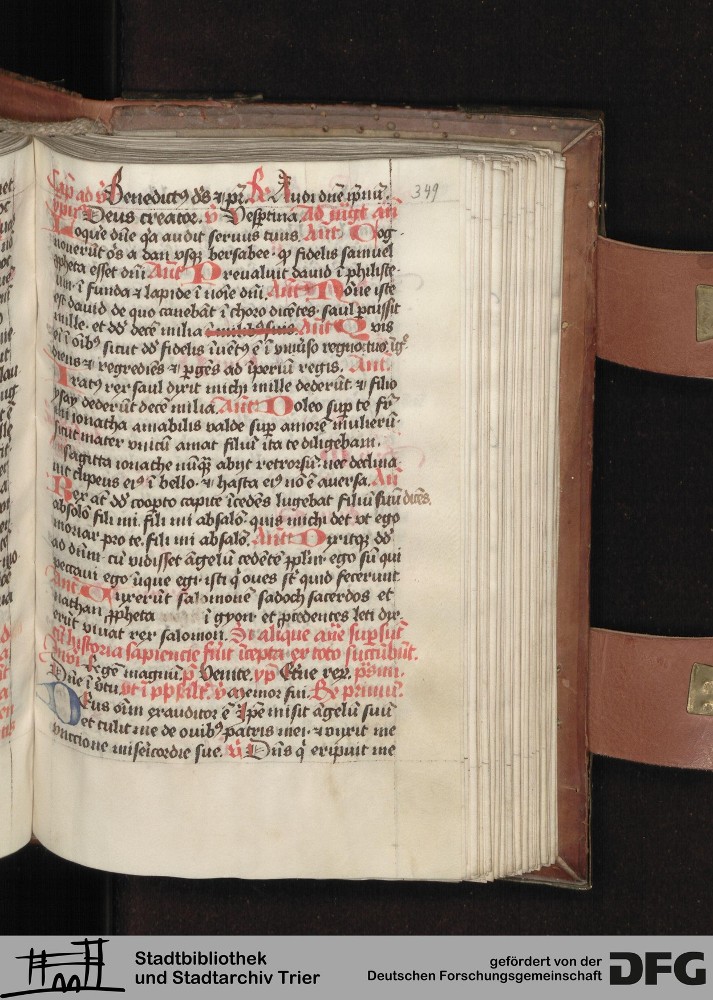 349
Cap ad v Benedict⁹ ds ⁊ pr̄. R Audi dn̄e ȳpnū.
ypn⁹ Deus creator. v Vesp̄tina. ad mḡt an̄
Loq̄re dn̄e q̄a audit seruus tuus. Ant. Cog-
nouerūt ōs a dan vsq̄ bersabee · q̄ fidelis samuel
ꝓpheta esset dn̄i. Ant Preualuit dauid ī philiste-
um · ī funda ⁊ lapide ī noīe dn̄i. Ant Nōne iste
est dauid de quo canebāt ī choro dicētes · saul p̄cussit
mille · et dd̄ decē milia Ant Quis
eī ī oīb⁹ sicut dd̄ fidelis īuēt⁹ ē ī
diens ⁊ regrediēs ⁊ ꝑgēs ad īperiū regis. Ant.
Irat⁹ rex saul dixit michi mille dederūt ⁊ filio
ysay dederūt decē milia. Ant Doleo sup te fr̄
mi ionatha amabilis valde sup amorē mulierū
sicut mater vnicū amat filiū ita te diligebam.
sagitta ionathe nūq̄ abijt retrorsū · nec declina
uit clipeus ei⁹ ī bello · ⁊ hasta ei⁹ nō ē auersa. An̄
Rex at̄ dd̄ coopto capite īcedēs lugebat filiū suū dicēs.
absolō fili mi. fili mi absalō · quis michi det vt ego
moriar pro te. fili mi absalō. Ant Dixitq̄ dd̄
ad dn̄m · cū vidisset āgelū cedētē pplm̄ · ego sū qui
peccaui ego īique egi · isti q̄ oues st̄ quid fecerunt
Ant. Vnxerūt salomonē sadoch sacerdos et
nathan ꝓpheta ī gyon · et p̄cedentes leti dix-
erūt viuat rex salomon. Si alique an̄e sup̄sūt
cū hystoria sapiencie fūit īcepta ex toto succūbūt.
Inui Regē magnū. p̄ Venite. yp̄ Etn̄e rex. ps̄m.
Dn̄e ī v̄tu. vt ī psalt. v Memor fui. R primū.
Deus oīm exauditor ē Ip̄e misit āgelū suū
et tulit me de ouib⁹ patris mei · ⁊ vnxit me
vnctione misericordie sue. v Dn̄s q̄ eripuit me
Stadtbibliothek
und Stadtarchiv Trier
gefördert von der
Deutschen Forschungsgemeinschaft DFG